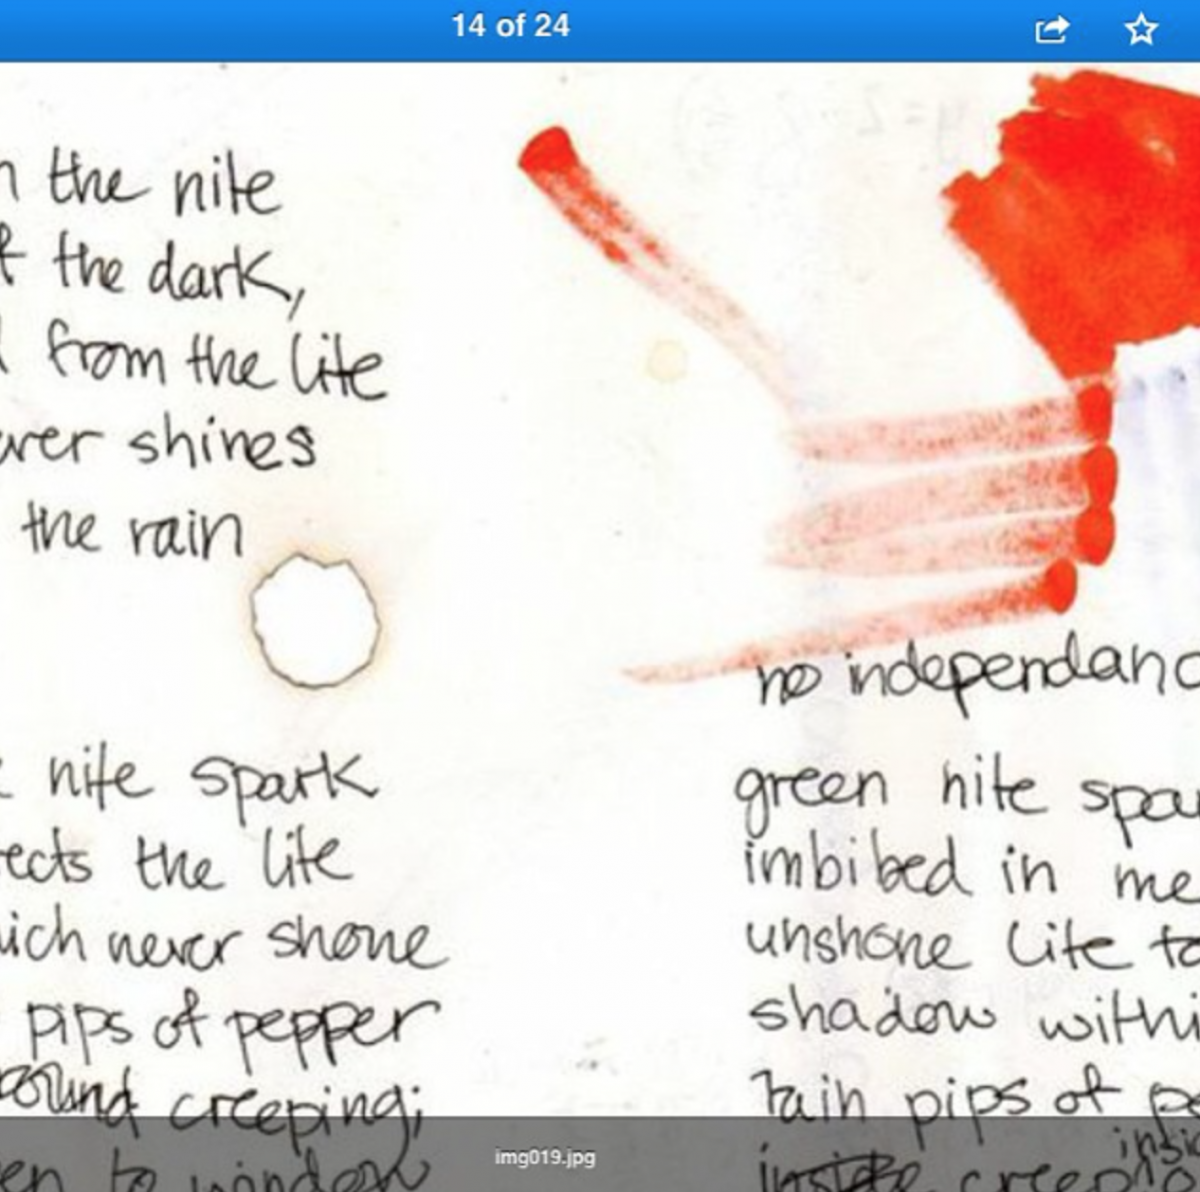 14 of 24
the nite
the dark,
from the lite
shines
the rain
nite spark
the lite
never shone
pips of pepper
creeping;
to window
no independanc
green nite spar
imbibed in me
unshone lite to
shadow withi
rain pips of pe
insi
inside creep
img019.jpg